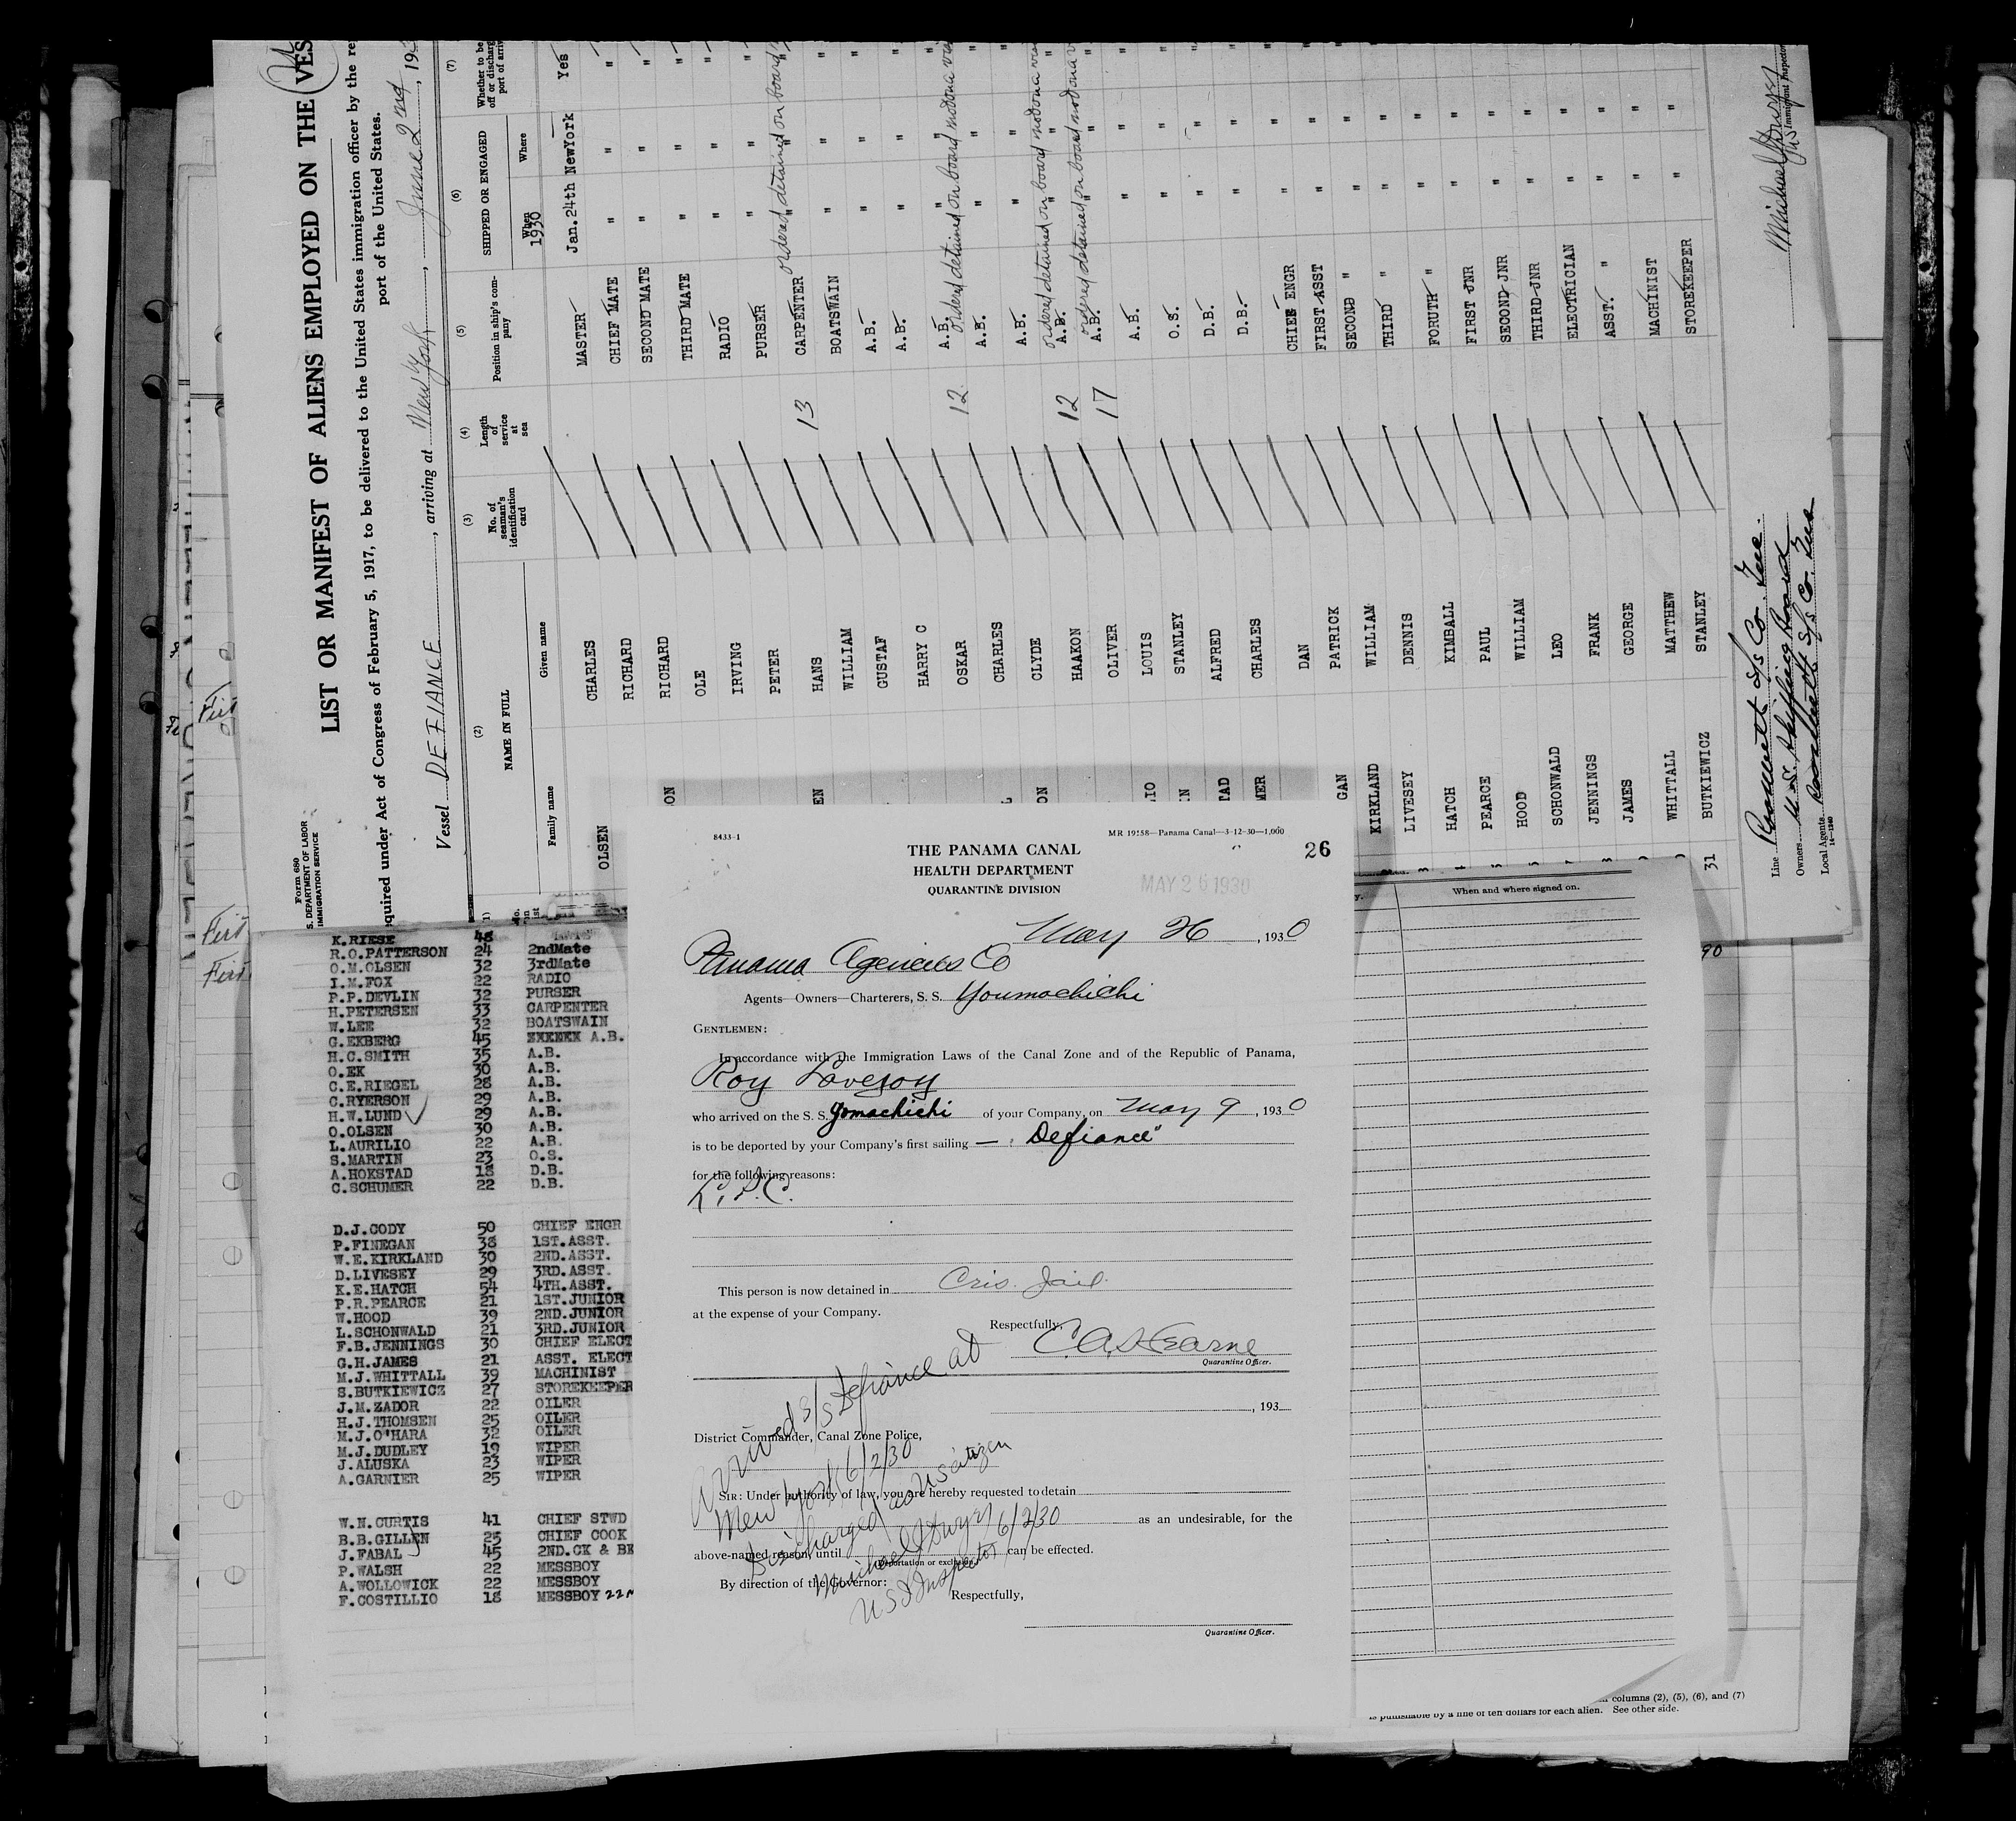 Form 680
S. DEPARTMENT OF LABOR
IMMIGRATION SERVICE
LIST OR MANIFEST OF ALIENS EMPLOYED ON THE VES
equired under Act of Congress of February 5, 1917, to be delivered to the United States immigration officer by the re
port of the United States.
Vessel DEFIANCE, arriving at New York, June 2nd, 193
(2) (3) (4) (5) (6) (7)
NAME IN FULL
Family name Given name
No. of seaman's identification card
Length of service at sea
Position in ship's company
SHIPPED OR ENGAGED
When Where
1930
Whether to be
off or discharg
port of arriv
OLSEN CHARLES MASTER Jan.24th NewYork Yes
RICHARD CHIEF MATE " " "
RICHARD SECOND MATE " " "
OLE THIRD MATE " " "
IRVING RADIO " " "
PETER PURSER " " "
HANS 13 CARPENTER " " " ordered detained on board
WILLIAM BOATSWAIN " " "
GUSTAF A.B. " " "
HARRY C A.B. " " "
OSKAR 12 A.B. " " " ordered detained on board no dona vis
CHARLES A.B. " " "
CLYDE A.B. " " "
HAAKON 12 A.B. " " " ordered detained on board no dona vis
OLIVER 17 A.B. " " " ordered detained on board no dona v
LOUIS A.B. " " "
STANLEY O.S. " " "
ALFRED D.B. " " "
CHARLES D.B. " " "
DAN CHIEF ENGR " " "
GAN PATRICK FIRST ASST " " "
KIRKLAND WILLIAM SECOND " " " "
LIVESEY DENNIS THIRD " " " "
HATCH KIMBALL FORUTH " " " "
PEARCE PAUL FIRST JNR " " "
HOOD WILLIAM SECOND JNR " " "
SCHONWALD LEO THIRD JNR " " "
JENNINGS FRANK ELECTRICIAN " " "
JAMES GEORGE ASST. " " " "
WHITTALL MATTHEW MACHINIST " " "
31 BUTKIEWICZ STANLEY STOREKEEPER " " "
Line Roosevelt S/S Co. Inc.
Owners U.S. Shipping Board
Local Agents Roosevelt S/S Co. Inc
Michael J Dwyer
Immigrant Inspector
K.RIESE 48
R.O.PATTERSON 24 2ndMate
O.M.OLSEN 32 3rdMate
I.M.FOX 22 RADIO
P.P.DEVLIN 32 PURSER
H.PETERSEN 33 CARPENTER
W.LEE 32 BOATSWAIN
G.EKBERG 45 A.B.
H.C.SMITH 35 A.B.
O.EK 30 A.B.
C.E.RIEGEL 28 A.B.
C.RYERSON 29 A.B.
H.W.LUND 29 A.B.
O.OLSEN 30 A.B.
L.AURILIO 22 A.B.
S.MARTIN 23 O.S.
A.HOKSTAD 18 D.B.
C.SCHUMER 22 D.B.
D.J.CODY 50 CHIEF ENGR
P.FINEGAN 38 1ST.ASST.
W.E.KIRKLAND 30 2ND.ASST.
D.LIVESEY 29 3RD.ASST.
K.E.HATCH 54 4TH.ASST.
P.R.PEARCE 21 1ST.JUNIOR
W.HOOD 39 2ND.JUNIOR
L.SCHONWALD 21 3RD.JUNIOR
F.B.JENNINGS 30 CHIEF ELECT
G.H.JAMES 21 ASST. ELECT
M.J.WHITTALL 39 MACHINIST
S.BUTKIEWICZ 27 STOREKEEPER
J.M.ZADOR 22 OILER
H.J.THOMSEN 25 OILER
M.J.O'HARA 32 OILER
M.J.DUDLEY 19 WIPER
J.ALUSKA 23 WIPER
A.GARNIER 25 WIPER
W.N.CURTIS 41 CHIEF STWD
B.B.GILLEN 25 CHIEF COOK
J.FABAL 45 2ND.CK & BE
P.WALSH 22 MESSBOY
A.WOLLOWICK 22 MESSBOY
F.COSTILLIO 18 MESSBOY
8433-1
MR 19258—Panama Canal—3-12-30—1,000
26
THE PANAMA CANAL
HEALTH DEPARTMENT
QUARANTINE DIVISION
MAY 26 1930
May 26, 1930
Panama Agencies Co
Agents—Owners—Charterers, S. S. Youmachichi
GENTLEMEN:
In accordance with the Immigration Laws of the Canal Zone and of the Republic of Panama,
Roy Lovejoy
who arrived on the S. S. Yomachichi of your Company, on May 9, 1930
is to be deported by your Company's first sailing — "Defiance"
for the following reasons:
L.P.C.
This person is now detained in Cris. Jail.
at the expense of your Company.
Respectfully,
C.A. Hearne
Quarantine Officer.
, 193
District Commander, Canal Zone Police,
SIR: Under authority of law, you are hereby requested to detain
as an undesirable, for the
above-named reason, until can be effected.
(Deportation or exclusion)
By direction of the Governor:
Respectfully,
Quarantine Officer.
Arrived S/S Defiance at
New York 6/2/30
Discharged as US citizen
Michael J Dwyer 6/2/30
US I Inspector
When and where signed on.
columns (2), (5), (6), and (7)
is punishable by a fine of ten dollars for each alien. See other side.
90
First
First